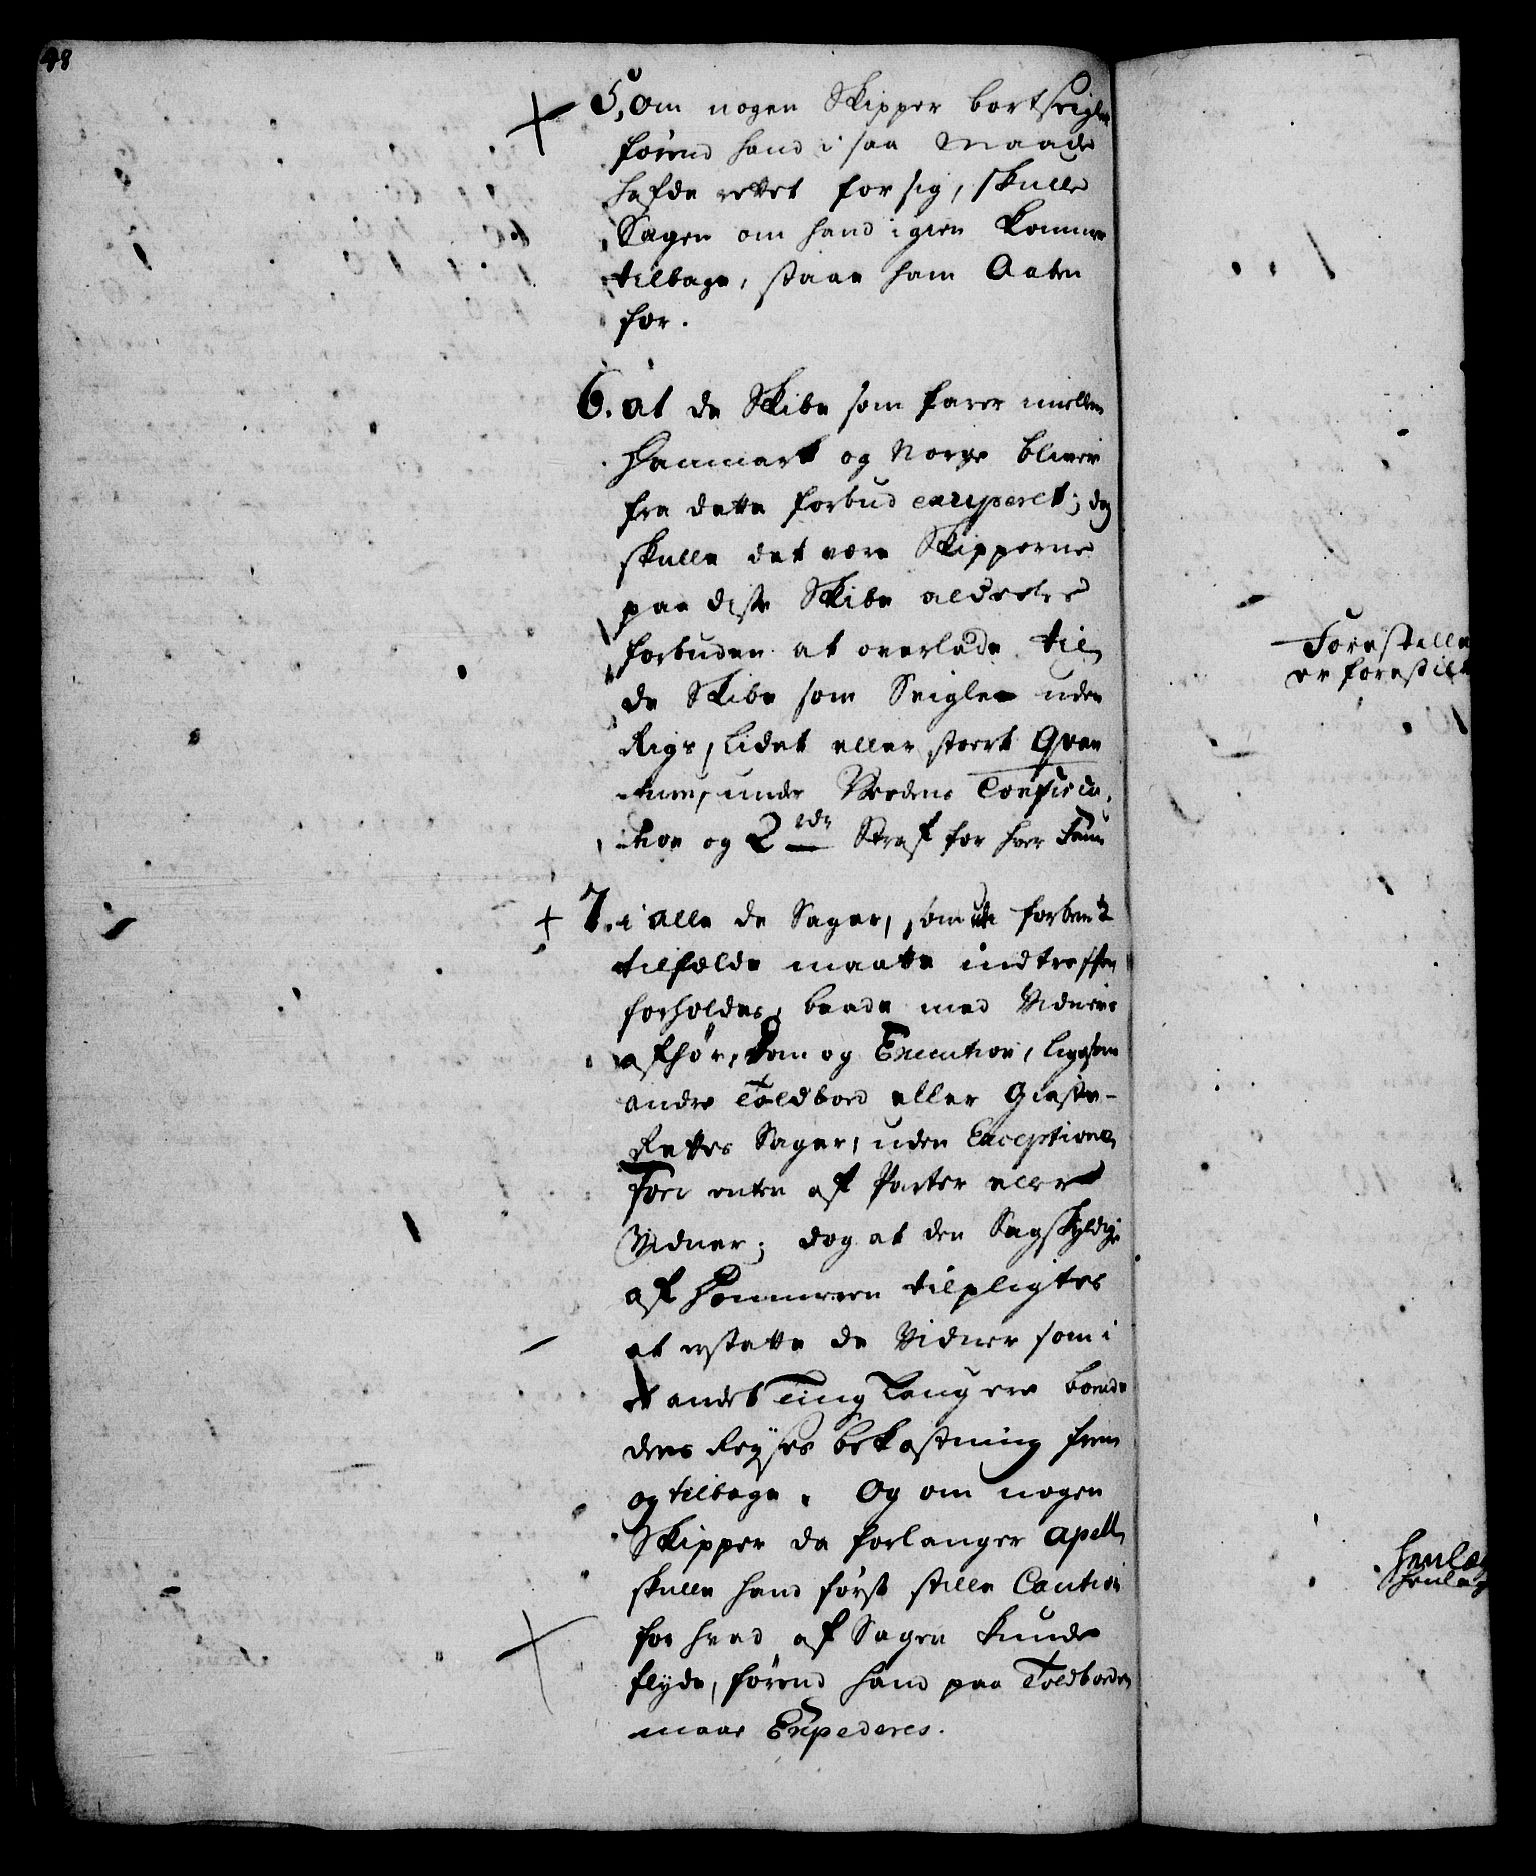 48
5, Om nogen Skipper bortseigler
førend hand i saa Maade
hafde rettet for sig, skulle
Sagen om hand igien kommer
tilbage, staae ham Aaben
for.
6. at de Skibe som farer mellem
Danmark og Norge bliver
fra dette forbud eximeret; dog
skulle det være Skipperne
paa disse Skibe aldeeles
forbuden at overlade til
de Skibe som Seigler uden
Rigs, lidet eller stoert Qvan
-tum, under Verdens Confisca,
-tion og 2 rdr Straf for hver
7. i alle de Sager, som
tilfelde maatte indtreffen
forholdes, baade med Vidners
afhør, Dom og Execution, ligesom
andre Toldbod eller Gieste-
Rettes Sager, uden Exceptioner
Fori enten af Parter eller
Vidner; dog at den Sagskyldige
af Dommeren tilpligtes
at erstatte de Vidner som i
et andet Ting Laug ere boende
deres Reyses bekostning frem
og tilbage. Og om nogen
Skipper da forlanger Apell,
skulle hand først stille Caution
for hvad af Sagen kunde
flyde, førend hand paa Toldboden
maae Expederes.
Forestille
er forestilt
henleg
henleg